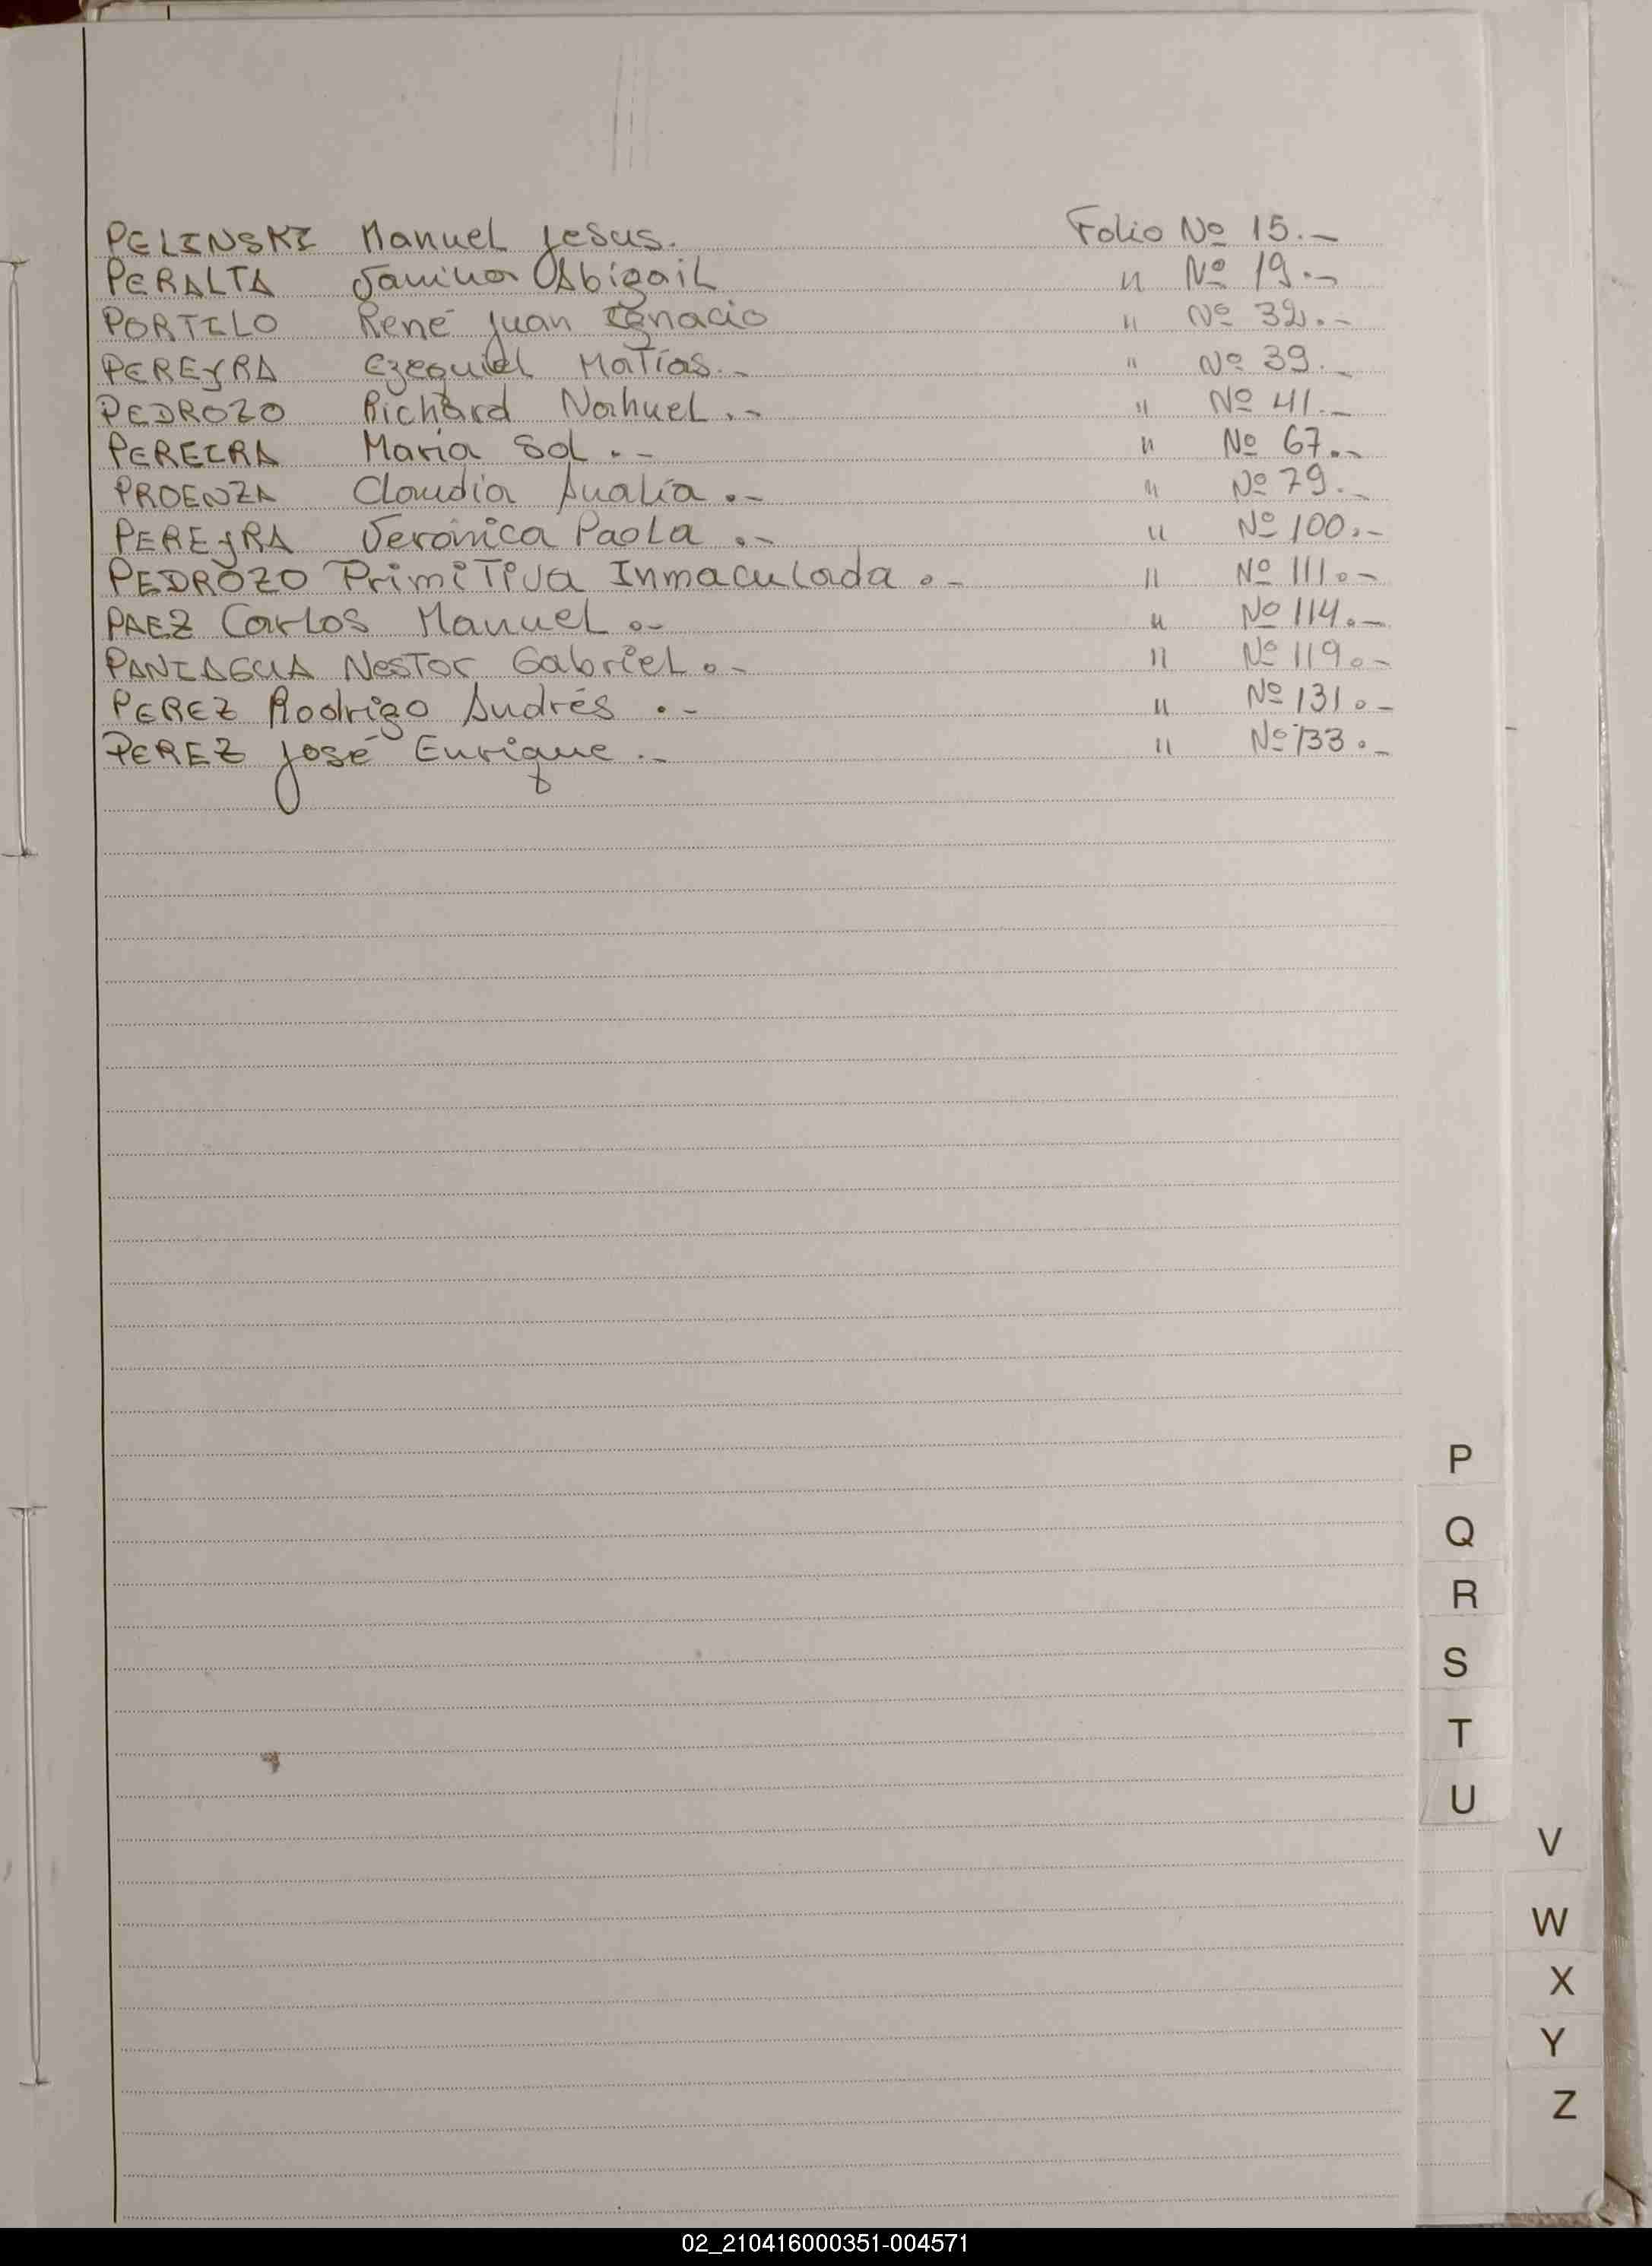 PELINSKI Manuel Jesus. Folio Nº 15.-
PERALTA Janina Abigail " Nº 19.-
PORTILO René Juan Ignacio " Nº 32.-
PEREYRA Ezequiel Matías.- " Nº 39.-
PEDROZO Richard Nahuel.- " Nº 41.-
PEREIRA Maria Sol.- " Nº 67.-
PROENZA Claudia Analía.- " Nº 79.-
PEREYRA Verónica Paola.- " Nº 100.-
PEDROZO Primitiva Inmaculada.- " Nº 111.-
PAEZ Carlos Manuel.- " Nº 114.-
PANIAGUA Nestor Gabriel.- " Nº 119.-
PEREZ Rodrigo Andrés.- " Nº 131.-
PEREZ José Enrique.- " Nº 133.-
P
Q
R
S
T
U
V
W
X
Y
Z
02_210416000351-004571